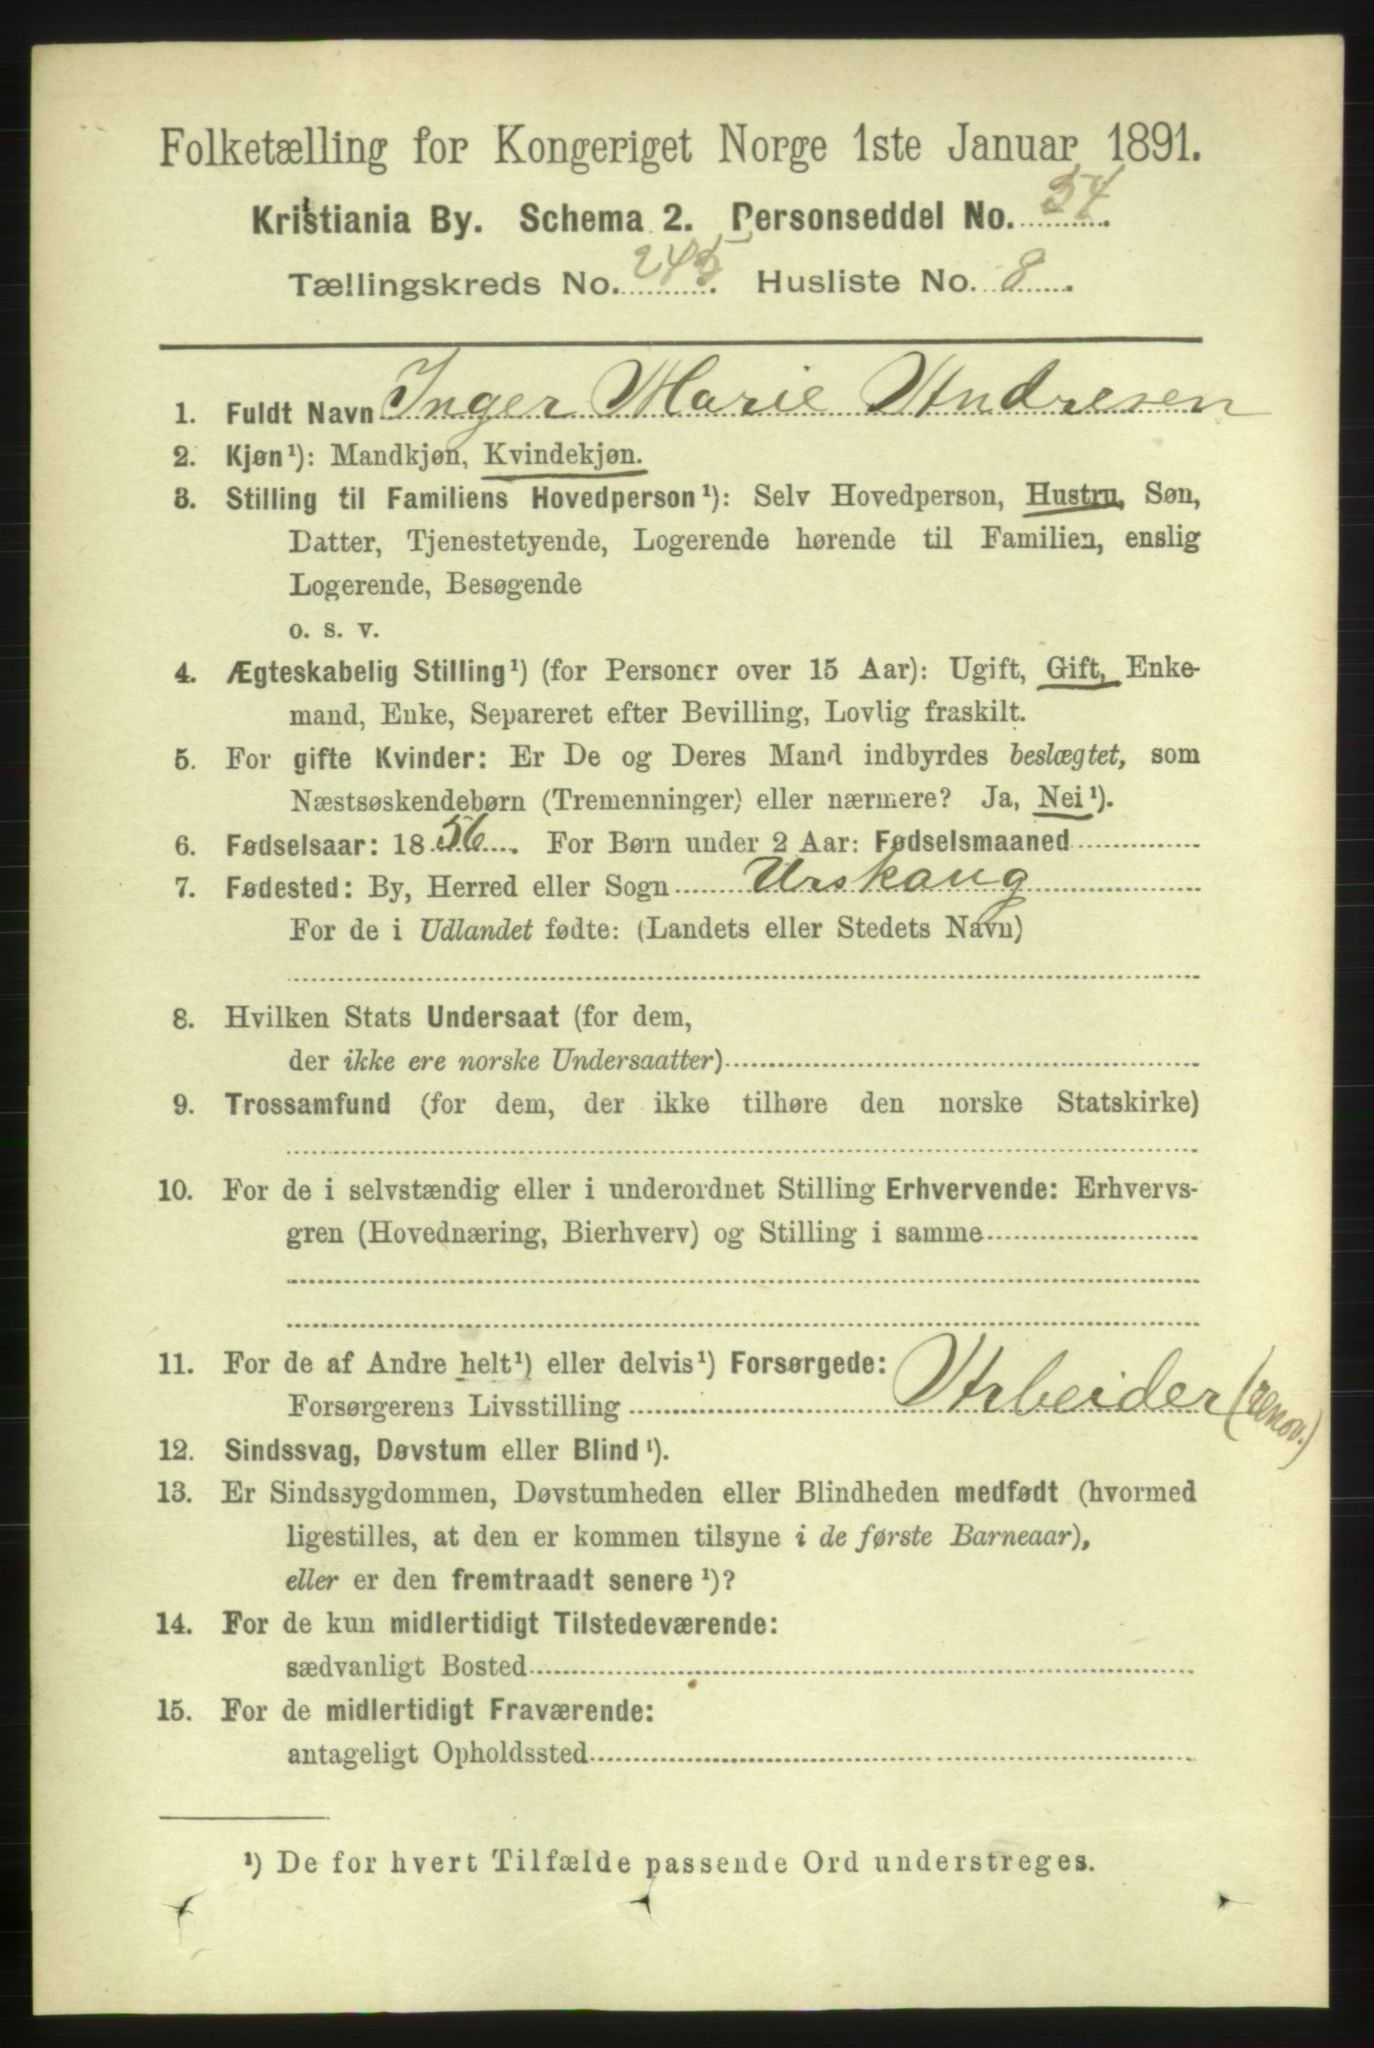 Folketælling for Kongeriget Norge 1ste Januar 1891.
Kristiania By. Schema 2. Personseddel No. 54.
Tællingskreds No. 245. Husliste No. 8.
1. Fuldt Navn Inger Marie Andresen
2. Kjøn¹): Mandkjøn, Kvindekjøn.
3. Stilling til Familiens Hovedperson¹): Selv Hovedperson, Hustru, Søn,
Datter, Tjenestetyende, Logerende hørende til Familien, enslig
Logerende, Besøgende
o. s. v.
4. Ægteskabelig Stilling¹) (for Personer over 15 Aar): Ugift, Gift, Enke-
mand, Enke, Separeret efter Bevilling, Lovlig fraskilt.
5. For gifte Kvinder: Er De og Deres Mand indbyrdes beslægtet, som
Næstsøskendebørn (Tremenninger) eller nærmere? Ja, Nei¹).
6. Fødselsaar: 1856. For Børn under 2 Aar: Fødselsmaaned
7. Fødested: By, Herred eller Sogn Urskoug
For de i Udlandet fødte: (Landets eller Stedets Navn)
8. Hvilken Stats Undersaat (for dem,
der ikke ere norske Undersaatter)
9. Trossamfund (for dem, der ikke tilhøre den norske Statskirke)
10. For de i selvstændig eller i underordnet Stilling Erhvervende: Erhvervs-
gren (Hovednæring, Bierhverv) og Stilling i samme
11. For de af Andre helt¹) eller delvis¹) Forsørgede:
Forsørgerens Livsstilling Arbeider (renov.)
12. Sindssvag, Døvstum eller Blind¹).
13. Er Sindssygdommen, Døvstumheden eller Blindheden medfødt (hvormed
ligestilles, at den er kommen tilsyne i de første Barneaar),
eller er den fremtraadt senere¹)?
14. For de kun midlertidigt Tilstedeværende:
sædvanligt Bosted
15. For de midlertidigt Fraværende:
antageligt Opholdssted
¹) De for hvert Tilfælde passende Ord understreges.